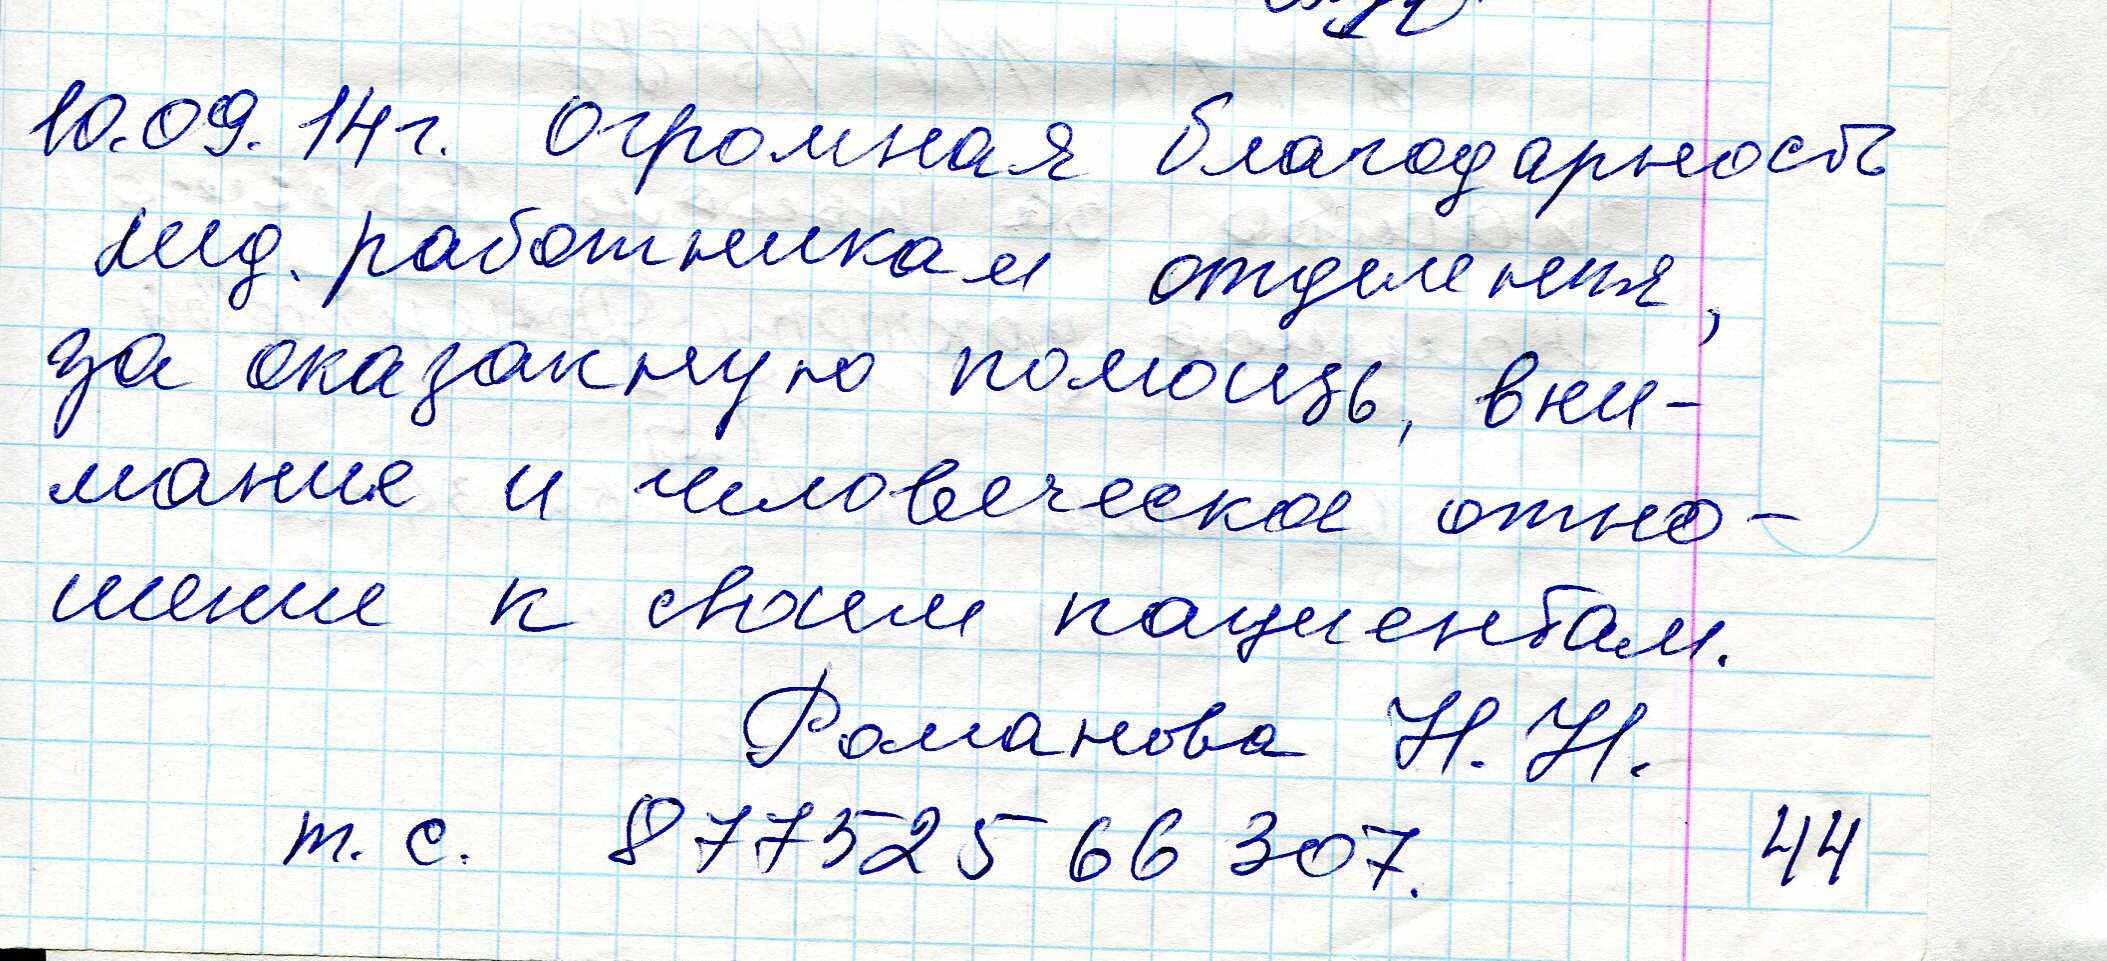 10.09.14г. Огромная благодарность
мед. работникам отделения,
за оказанную помощь, вни-
мание и человеческое отно-
шение к своим пациентам.
Романова Н.Н.
т. с. 8 77525 66 307.
44